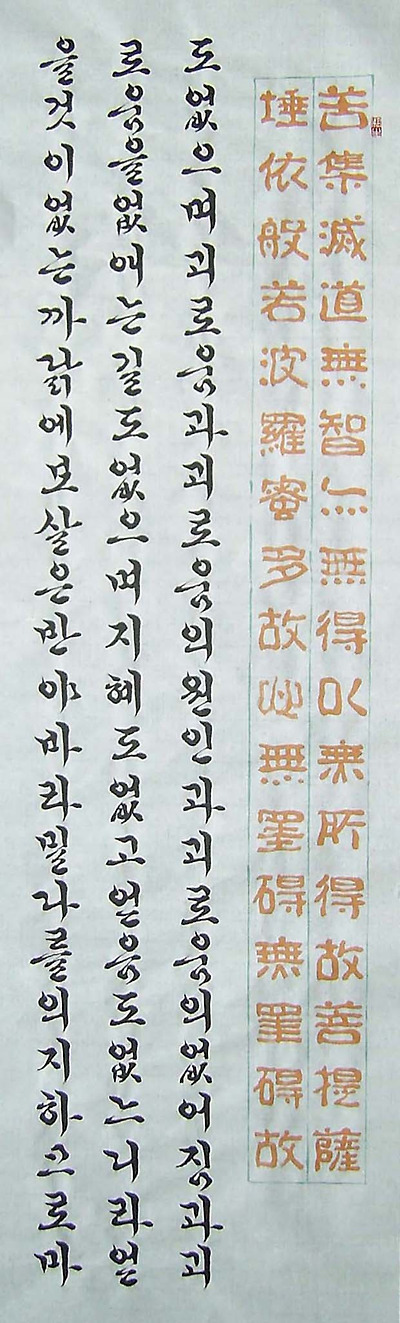 苦集滅道無智亦無得以無所得故菩提薩
埵依般若波羅蜜多故心無罣碍無罣碍故
도없으며괴로움과괴로움의원인과괴로움의없어짐과괴
로움을없에는길도없으며지혜도없고얻음도없느니라얻
을것이없는까닭에보살은반야바라밀다를의지하므로마